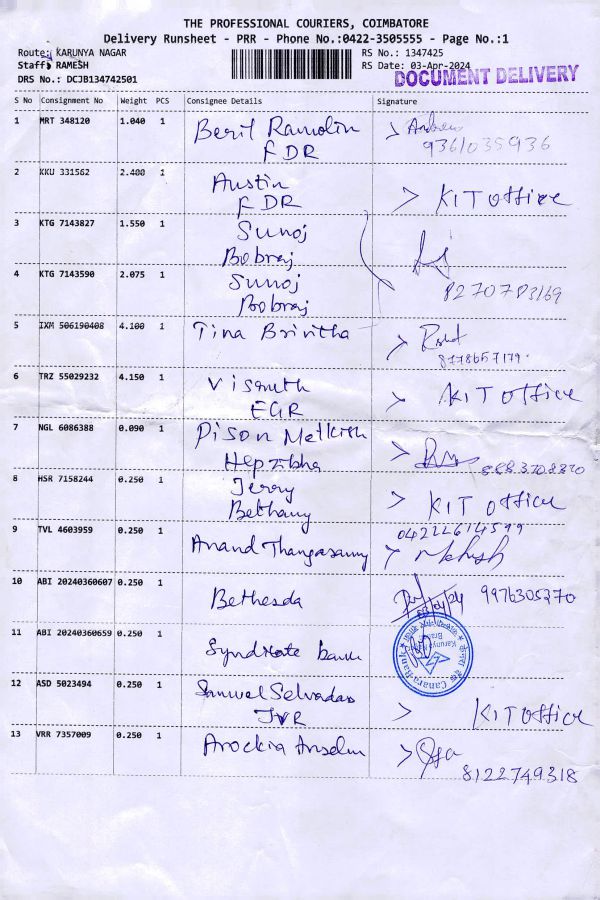 THE PROFESSIONAL COURIERS, COIMBATORE
Delivery Runsheet - PRR - Phone No.:0422-3505555 - Page No.:1
Route: KARUNYA NAGAR
RS No.: 1347425
Staff: RAMESH
RS Date: 03-Apr-2024
DRS No.: DCJB134742501
DOCUMENT DELIVERY
S No Consignment No Weight PCS Consignee Details Signature
1 MRT 348120 1.040 1 Beril Ramolin
FDR
Andrews
9361035936
2 KKU 331562 2.400 1 Austin
FDR
KIT office
3 KTG 7143827 1.550 1 Sunoj
Bobraj
4 KTG 7143590 2.075 1 Sunoj
Bobraj
8270783169
5 IXM 506190408 4.100 1 Tina Brintha
8778657179
6 TRZ 55029232 4.150 1
EGR
KIT office
7 NGL 6086388 0.090 1 Dison
Hepzibha
8883708870
8 HSR 7158244 0.250 1 Jerry
Bethany
KIT office
9 TVL 4603959 0.250 1 Anand Thangasamy
04222614599
10 ABI 20240360607 0.250 1 Bethesda
9976305370
11 ABI 20240360659 0.250 1 Syndicate bank
Canara Bank
12 ASD 5023494 0.250 1 Samuel Selvadas
JVR
KIT office
13 VRR 7357009 0.250 1 Arockia Anselm
8122749318